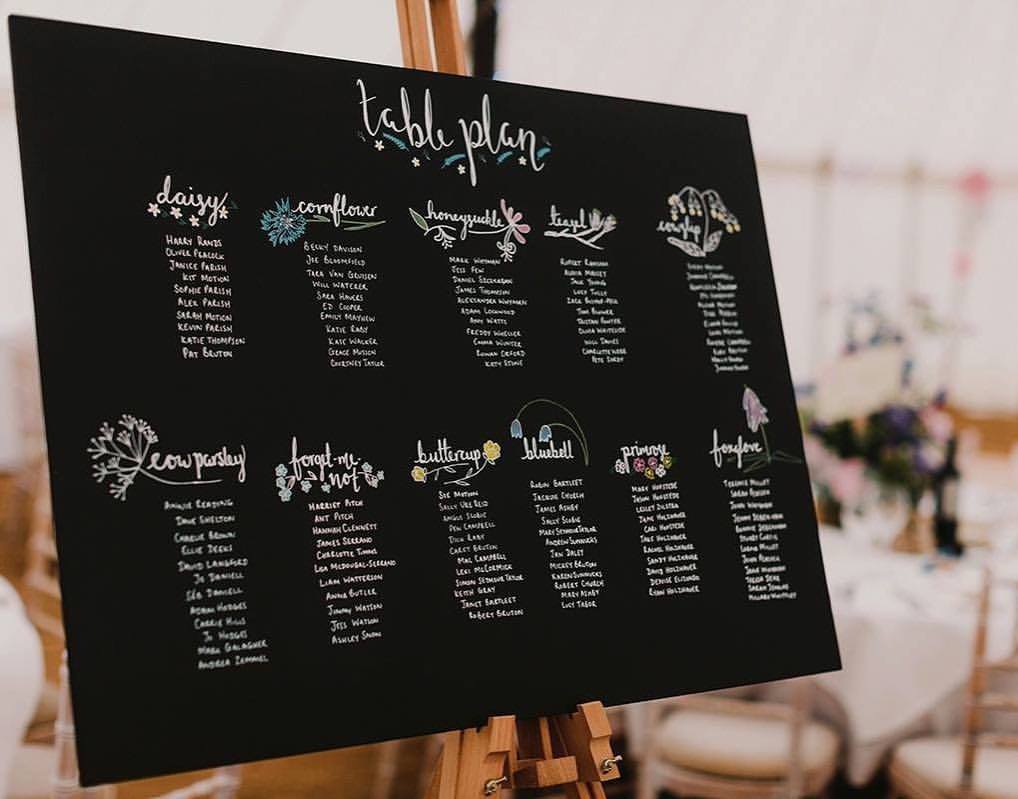 table plan
daisy
HARRY RANDS
OLIVER PEACOCK
JANICE PARISH
KIT MOTION
SOPHIE PARISH
ALEX PARISH
SARAH MOTION
KEVIN PARISH
KATIE THOMPSON
PAT BRUTON
cornflower
BECKY DAVISON
JOE BLOOMFIELD
TARA VAN GRUISEN
WILL WATERER
SARA HAVERS
ED COOPER
EMILY MAYHEW
KATIE RABY
KASE WALKER
GRACE MUSSON
COURTNEY TAYLOR
honeysuckle
MARK WHYMAN
JESS FEW
DANIEL
JAMES THOMPSON
ALEKSANDER WHYMAN
ADAM LOCKWOOD
AMY WATTS
FREDDY WHEELER
EMMA WUNTER
ROWAN OXFORD
KATY STONE
teasel
RUPERT
MASSET
JACK YOUNG
LUCY TULLY
ZACK
TOM BOWER
TRISTAN HUNTER
OLIVIA WHITESIDE
WILL DAVIES
CHARLOTTE WEBB
PETE
cowslip
MOTION
CAMPBELL
MOTION
cow parsley
ANNIE READING
DAVE SHELTON
CHARLIE BROWN
ELLIE DEEKS
DAVID LANGFORD
JO DANIELL
SÉB DANIELL
ADAM HODGES
CARRIE HILLS
JO HODGES
MARK GALAGHER
ANDREA ZEMMEL
forget-me-not
HARRIET PITCH
ANT PITCH
HANNAH CLENNETT
JAMES SERRANO
CHARLOTTE TIMMS
LISA MCDOUGAL-SERRANO
LIAM WATTERSON
ANNA BUTLER
JIMMY WATSON
JESS WATSON
ASHLEY SNOW
buttercup
SUE MOTION
SALLY
ANGUS SCOBIE
PEN CAMPBELL
DICK RABY
CAREY BRUTON
MAL CAMPBELL
LEXI MCCORMICK
SIMON SEYMOUR TAYLOR
KEITH GRAY
JANET BARTLEET
ROBERT BRUTON
bluebell
ROBIN BARTLEET
JACQUIE CHURCH
JAMES ASHBY
SALLY SCOBIE
MARY SEYMOUR TAYLOR
ANDREW SUNNUCKS
JAN DALEY
MICKEY BRUTON
KAREN SUNNUCKS
ROBERT CHURCH
MARY ASHBY
LUCY TABOR
primrose
MARY HOFSTEDE
JASON HOFSTEDE
LESLEY DILSTRA
JANE HOLZHAUER
CARL HOFSTEDE
JAKE HOLZHAUER
RACHEL HOLZHAUER
SANDY HOLZHAUER
DAVID HOLZHAUER
DENISE ELIZONDO
RYAN HOLZHAUER
foxglove
TERENCE MILLET
SARAH
JOHN WHYMAN
JENNY
BONNIE
STUART CURTIS
LORNA MILLET
JOHN PEACOCK
JANE WHYMAN
TESSA
SARAH JENKINS
HILLARY WHITTLEY